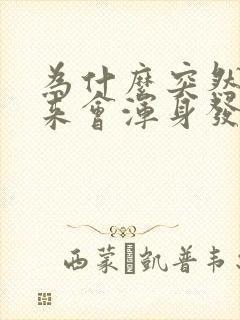 為什麼突然
來會渾身發
西蒙·凱普韦